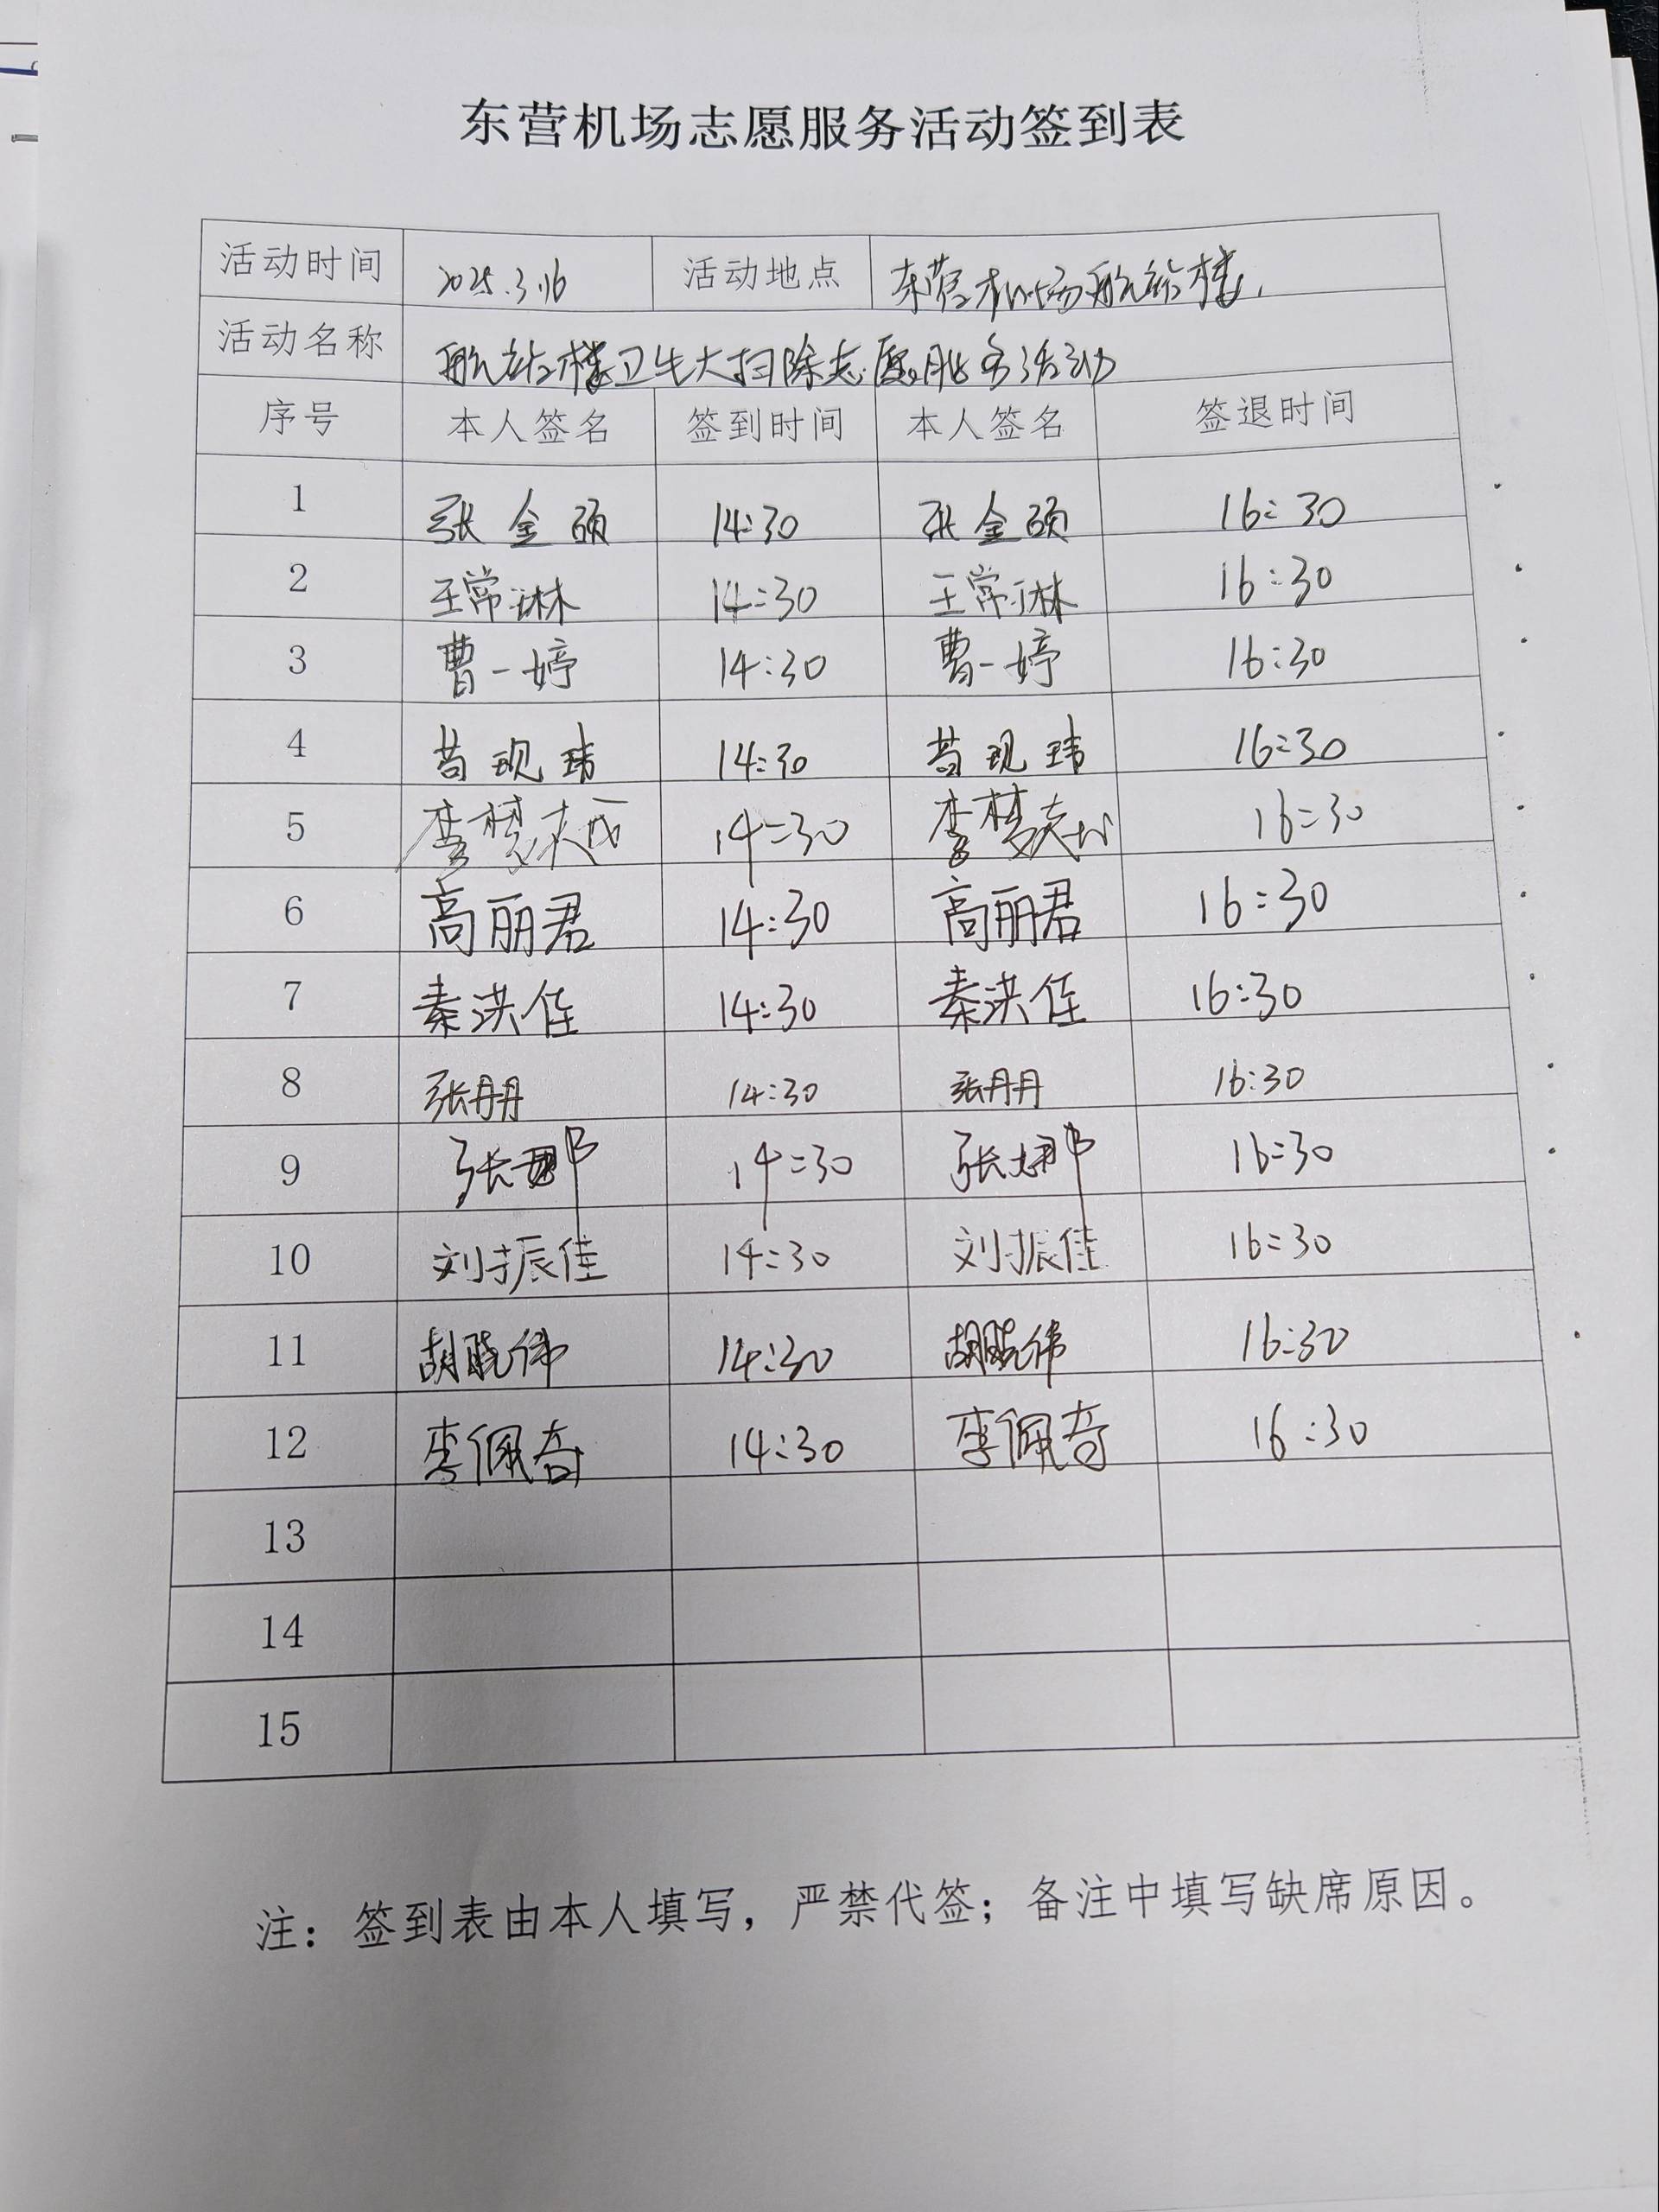 东营机场志愿服务活动签到表
活动时间 2025.3.16 活动地点 东营机场航站楼
活动名称 航站楼卫生大扫除志愿服务活动
序号 本人签名 签到时间 本人签名 签退时间
1 张金硕 14:30 张金硕 16:30
2 王常淋 14:30 王常淋 16:30
3 曹一婷 14:30 曹一婷 16:30
4 苟现玮 14:30 苟现玮 16:30
5 李梦 14:30 李梦 16:30
6 高丽君 14:30 高丽君 16:30
7 秦洪佳 14:30 秦洪佳 16:30
8 张丹丹 14:30 张丹丹 16:30
9 张娜 14:30 张娜 16:30
10 刘振佳 14:30 刘振佳 16:30
11 胡晓伟 14:30 胡晓伟 16:30
12 李佩奇 14:30 李佩奇 16:30
13
14
15
注：签到表由本人填写，严禁代签；备注中填写缺席原因。